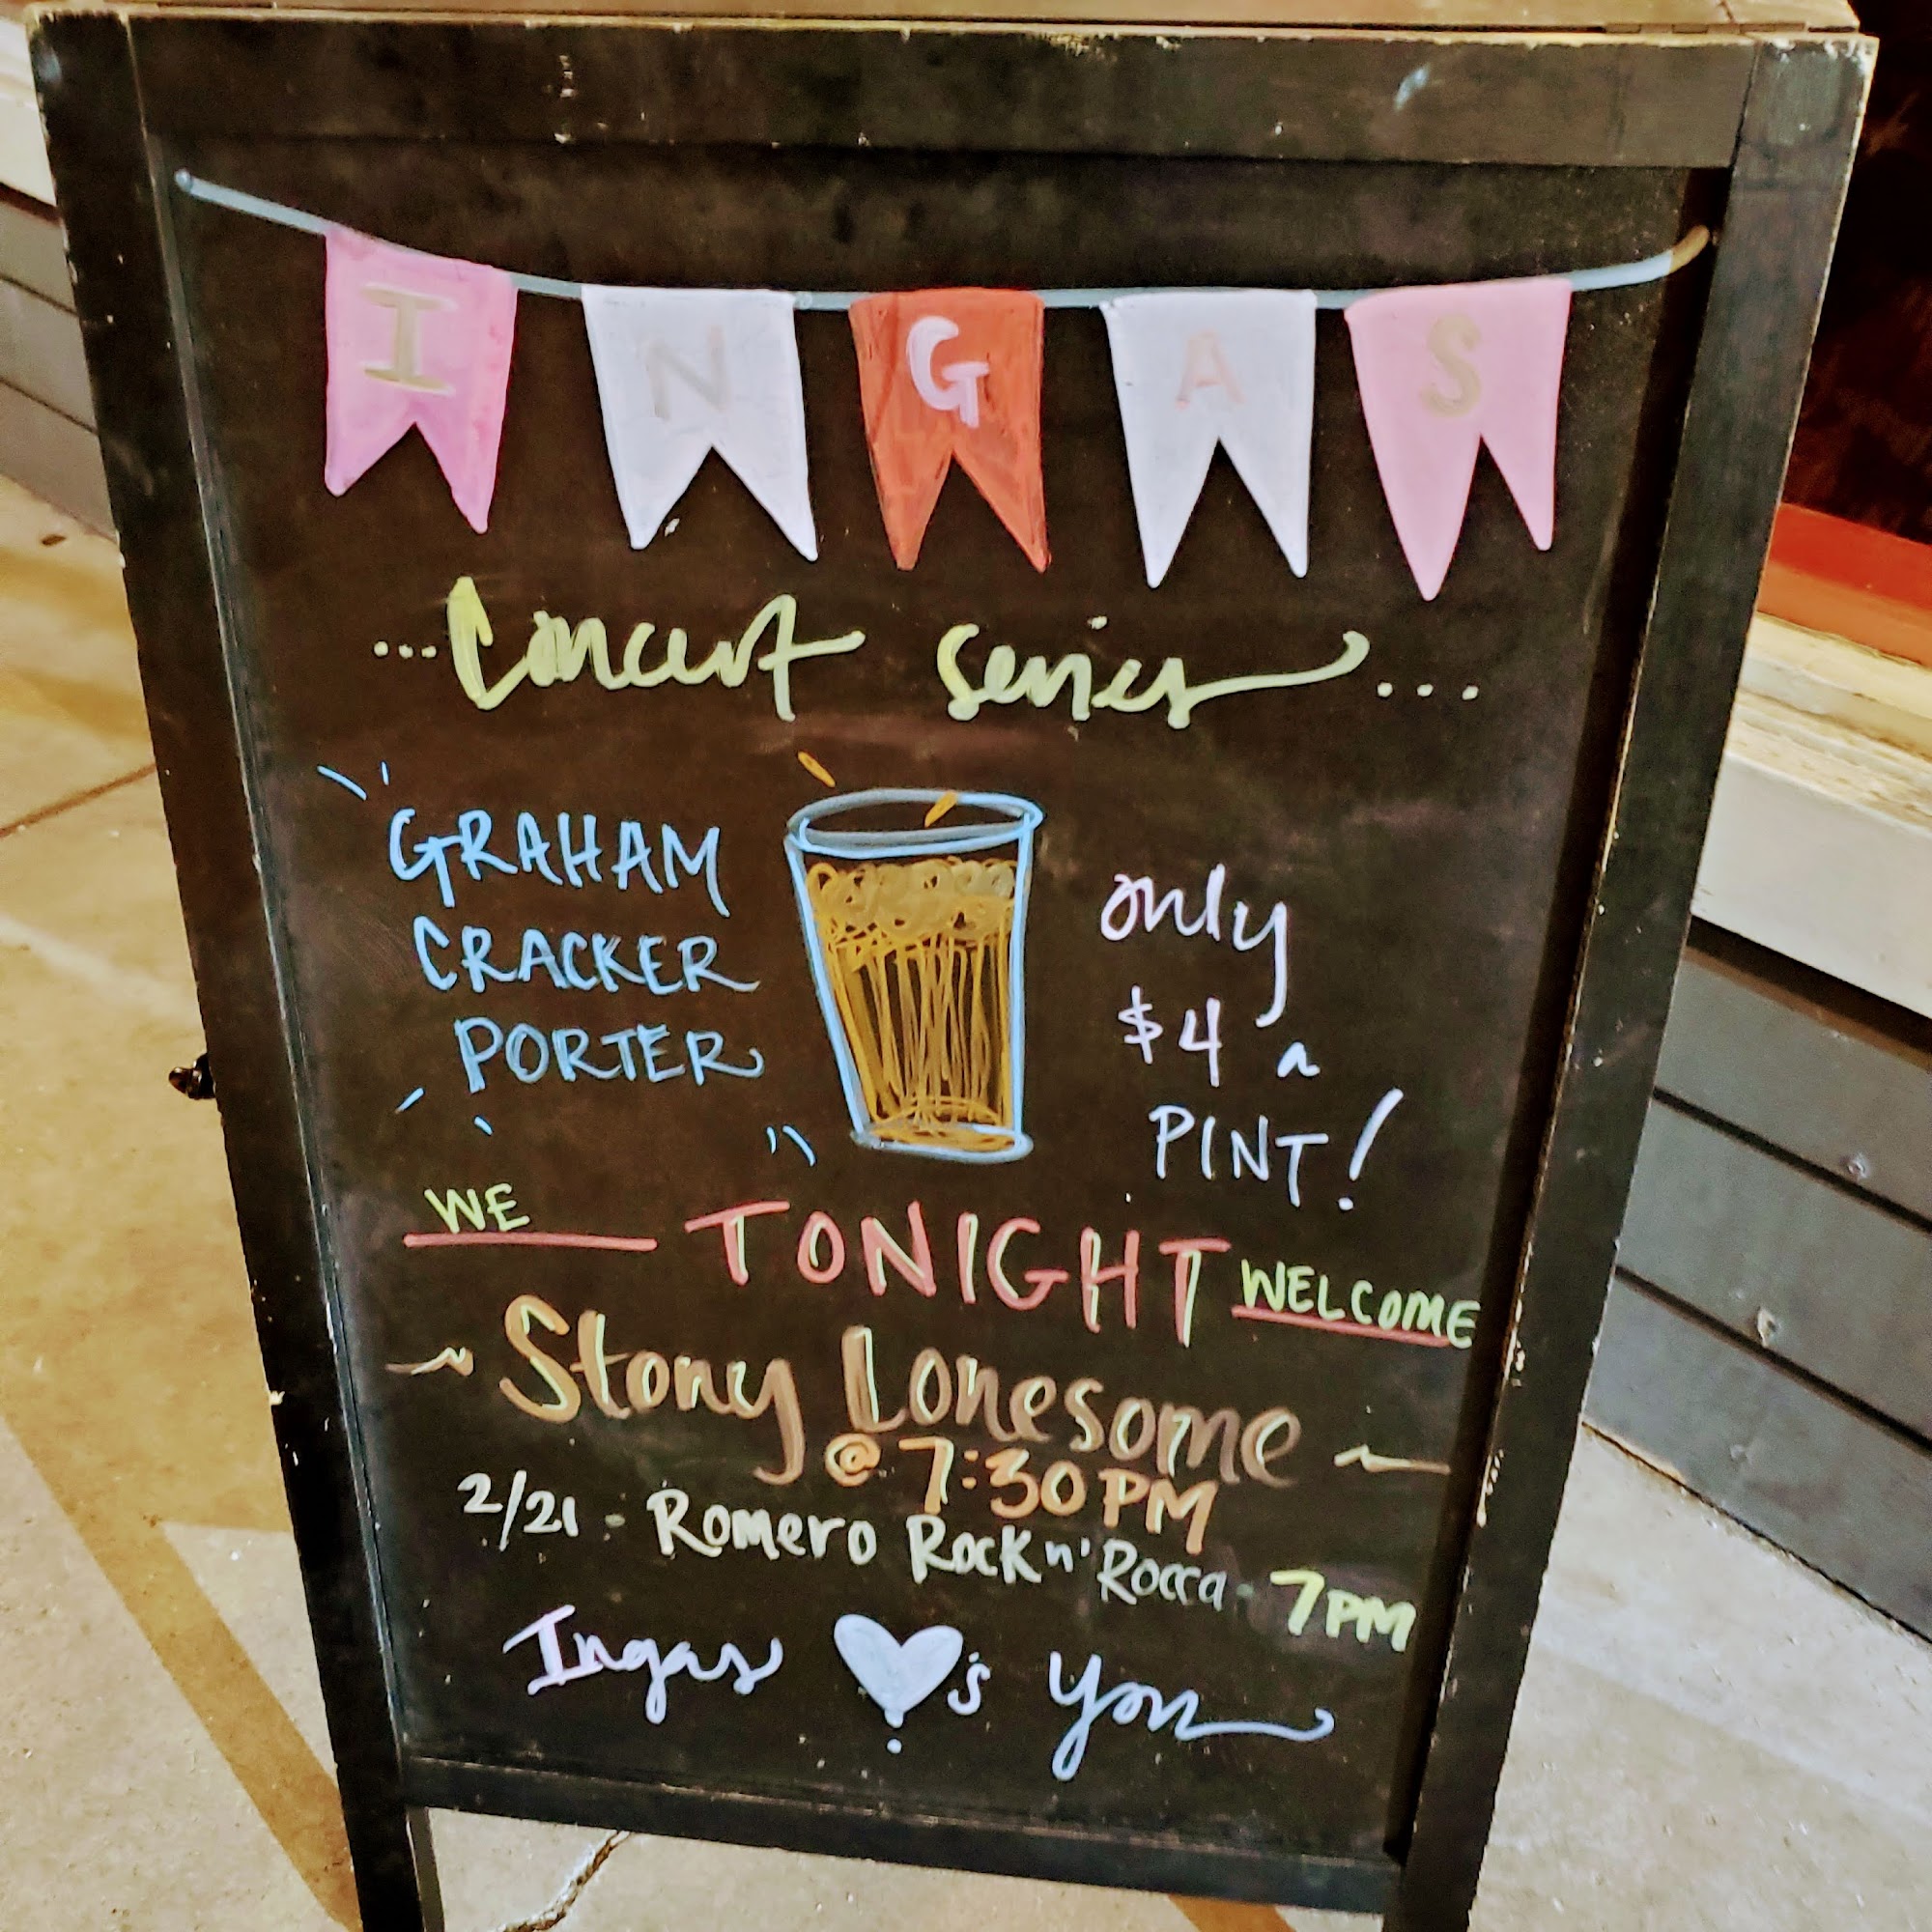 INGAS
...Concert series...
GRAHAM
CRACKER
PORTER
only
$4 a
PINT!
WE TONIGHT WELCOME
~ Stony Lonesome ~
@ 7:30 PM
2/21 - Romero Rock n' Rocca - 7PM
Ingas ♥'s You